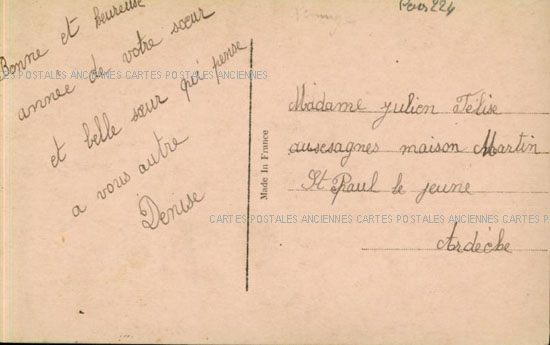 Bonne et heureuse
année de votre sœur
et belle sœur qui pense
a vous autre
Denise
CARTES POSTALES ANCIENNES CARTES POSTALES ANCIENNES
Made In France
Madame Julien Félise
aussesagnes maison Martin
St Paul le jeune
Ardèche
CARTES POSTALES ANCIENNES CARTES POSTALES ANCIENNES CARTES P